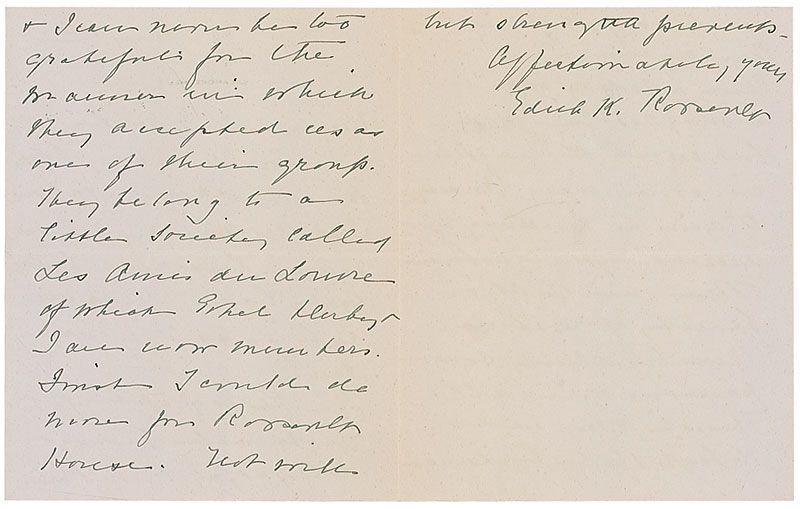 & I can never be too
grateful for the
manner in which
they accepted us as
one of their group.
They belong to a
little Society called
Les Amis du Louvre
of which Ethel Derby &
I are now members.
I wish I could do
more for Roosevelt
House. Not will
but strength prevents.
Affectionately yours
Edith K. Roosevelt